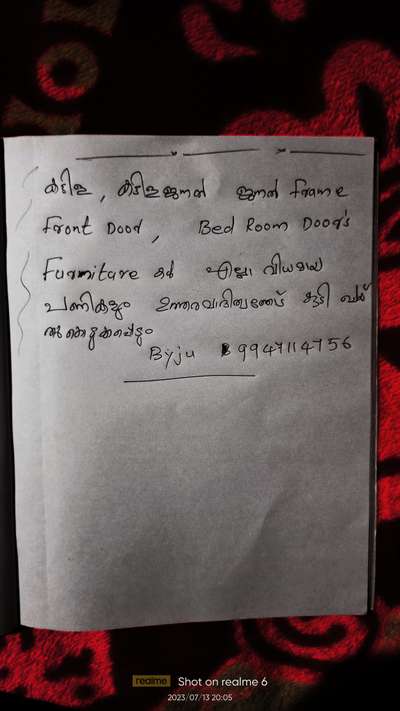 കട്ടിള, കട്ടിളജനൽ ജനൽ Frame
Front Door, Bed Room Door's
Furniture കൾ എല്ലാ വിധമായ
പണികളും ഉത്തരവാദിത്വത്തോട് കൂടി
Byju 9947114756
realme Shot on realme 6
2023/07/13 20:05